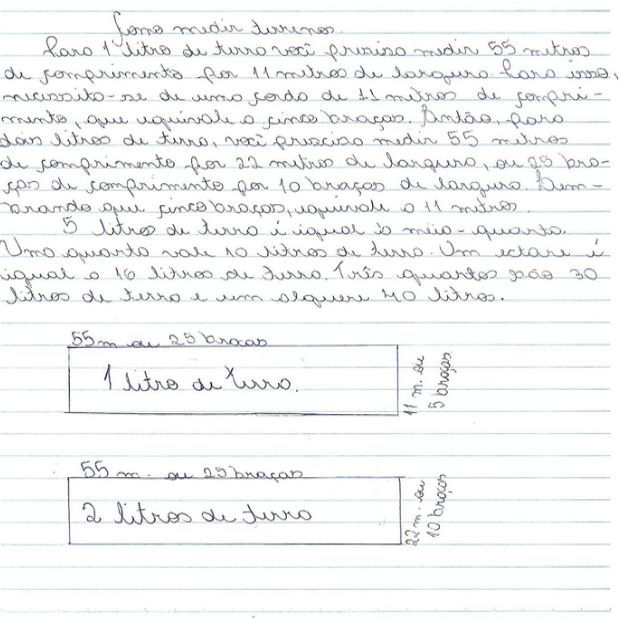 Como medir terrenos.
Para 1 litro de terra você precisa medir 55 metros
de comprimento por 11 metros de largura. Para isso,
necessita-se de uma corda de 11 metros de compri-
mento, que equivale a cinco braças. Então, para
dois litros de terra, você precisa medir 55 metros
de comprimento por 22 metros de largura, ou 25 bra-
ças de comprimento por 10 braças de largura. Lem-
brando que cinco braças, equivale a 11 metros.
5 litros de terra é igual a meia-quarta.
Uma quarta vale 10 litros de terra. Um ectare é
igual a 16 litros de terra. Três quartas são 30
litros de terra e um alquere 40 litros.
55m ou 25 braças
1 litro de terra.
11 m. ou
5 braças
55 m. ou 25 braças
2 litros de terra
22 m. ou
10 braças